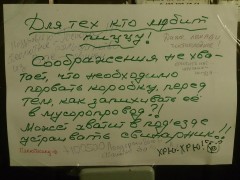 Для тех кто любит
пиццу!
Соображения не хва-
тает, что необходимо
порвать коробку, перед
тем, как запихивать её
в мусоропровод?!
Может хватит в подъезде
устраивать свинарник!!
ХРЮ-ХРЮ